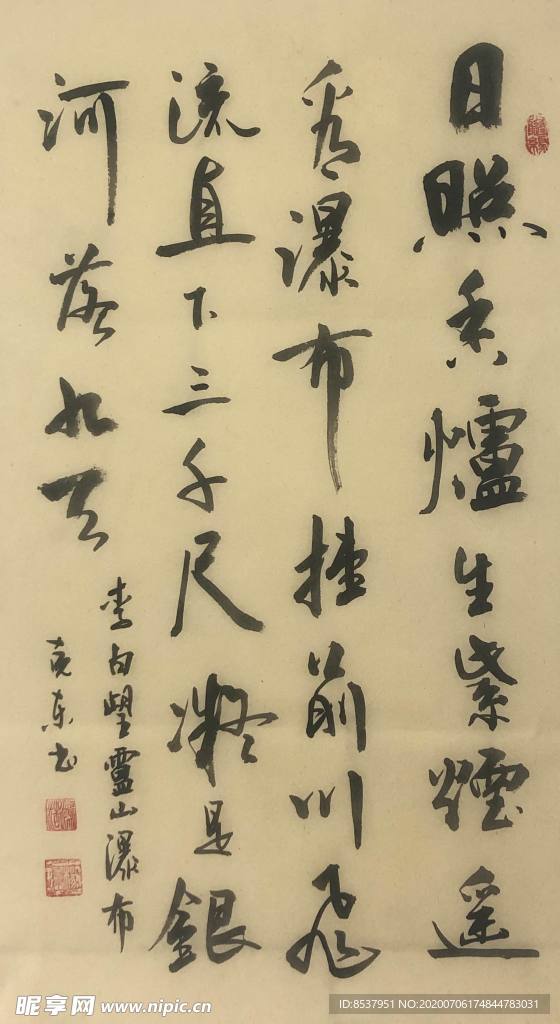 日照香爐生紫煙遥
看瀑布挂前川飛
流直下三千尺凝是銀
河落九天
李白望廬山瀑布
克东书
昵享网 www.nipic.cn
ID:8537951 NO:20200706174844783031